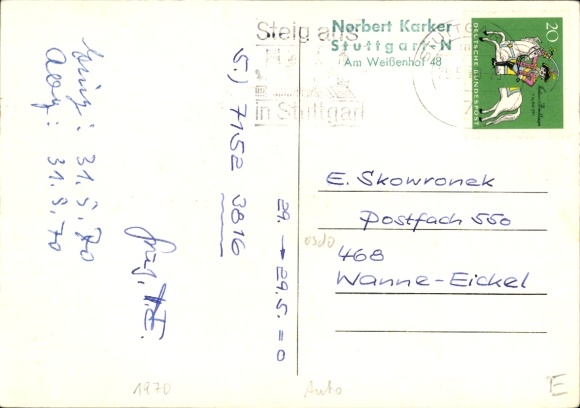 Steig aus
in Stuttgart
Norbert Karker
Stuttgart-N
Am Weißenhof 48
20
DEUTSCHE BUNDESPOST
E. Skowronek
Postfach 550
468
Wanne-Eickel
31.5.70
31.3.70
5) 7152 3816
29. → 29.5. = 0
1970
Auto
E